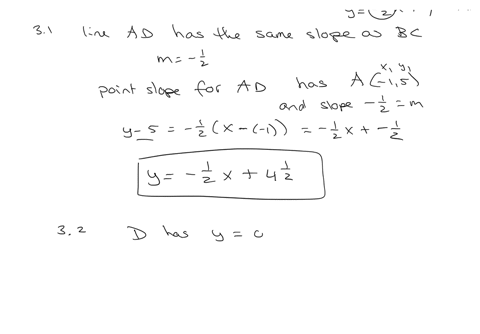 3.1 line AD has the same slope as BC
m = -1/2
point slope for AD has A(-1, 5)
x₁ y₁
and slope -1/2 = m
y - 5 = -1/2 (x - (-1)) = -1/2 x + -1/2
y = -1/2 x + 4 1/2
3.2 D has y = 0